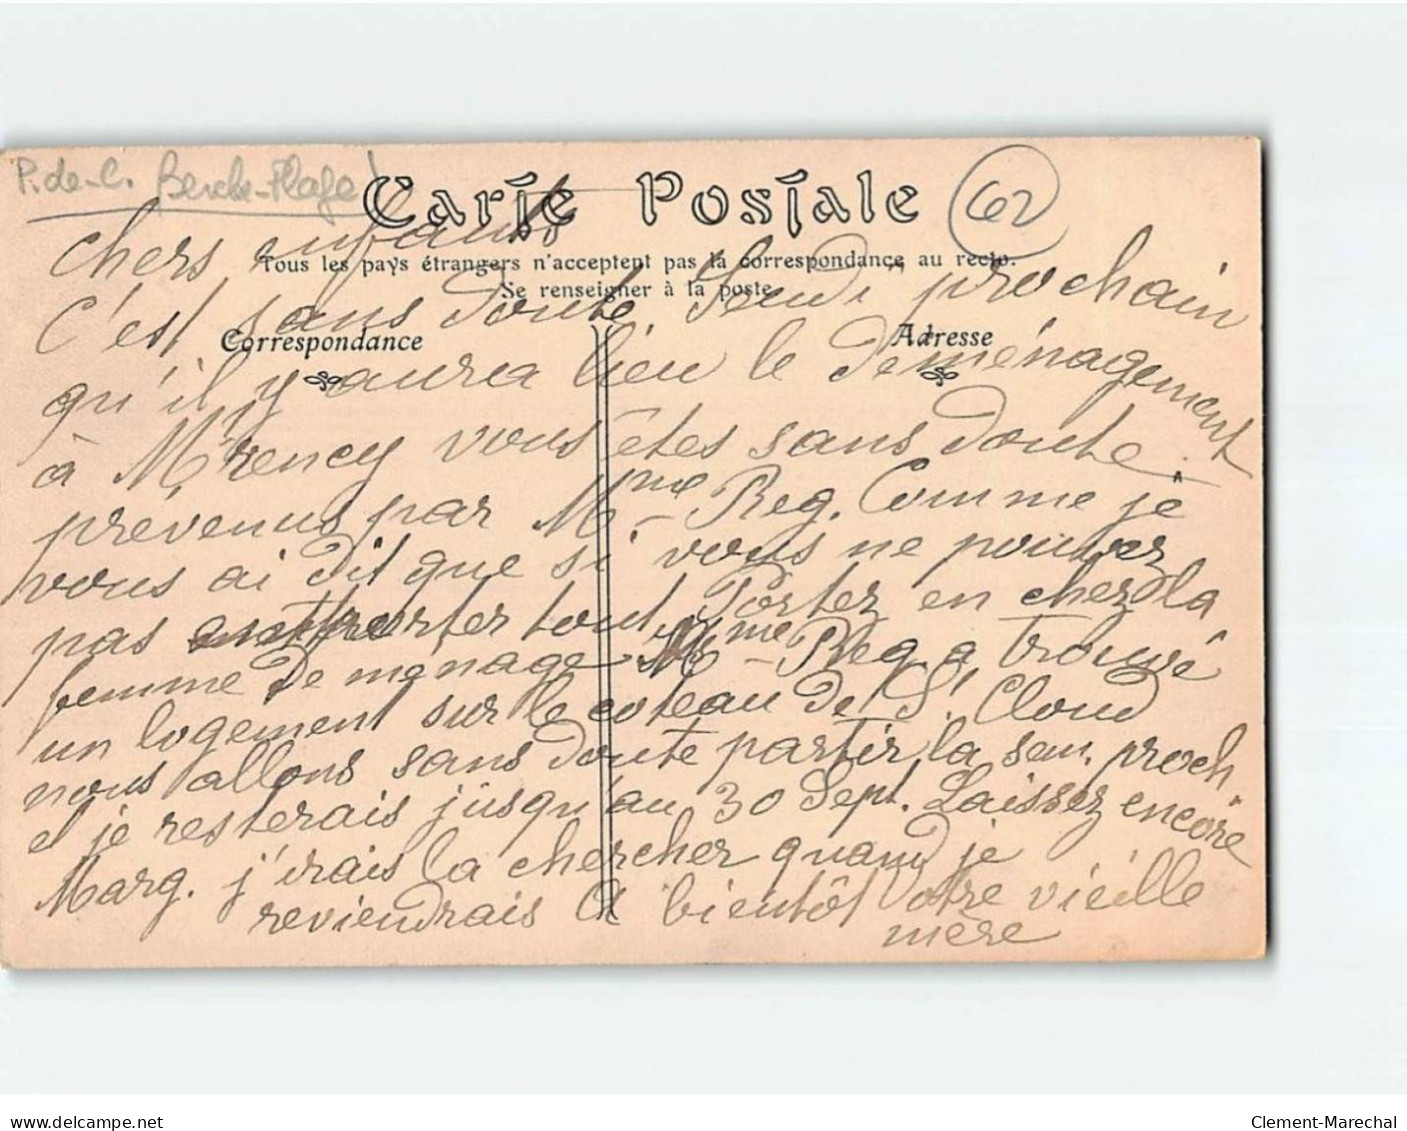 P.-de-C. Berck-Plage
62
Carte Postale
Tous les pays étrangers n'acceptent pas la correspondance au recto.
Se renseigner à la poste
Correspondance
Adresse
chers enfants
C'est sans doute Lundi prochain
qu'il y aurea lieu le demenagement
à M'rency vous êtes sans doute
prevenus par Mme Reg. Comme je
vous ai dit que si vous ne pouvez
pas emporter tout Portez en chez la
femme de menage Mme Reg a trouvé
un logement sur le coteau de St Cloud
nous allons sans doute partir la sem. proch
et je resterais jusqu'au 30 Sept. Laissez encore
Marg. j'irais la chercher quand je
reviendrais A bientôt Votre vieille
mère
www.delcampe.net
Clement-Marechal